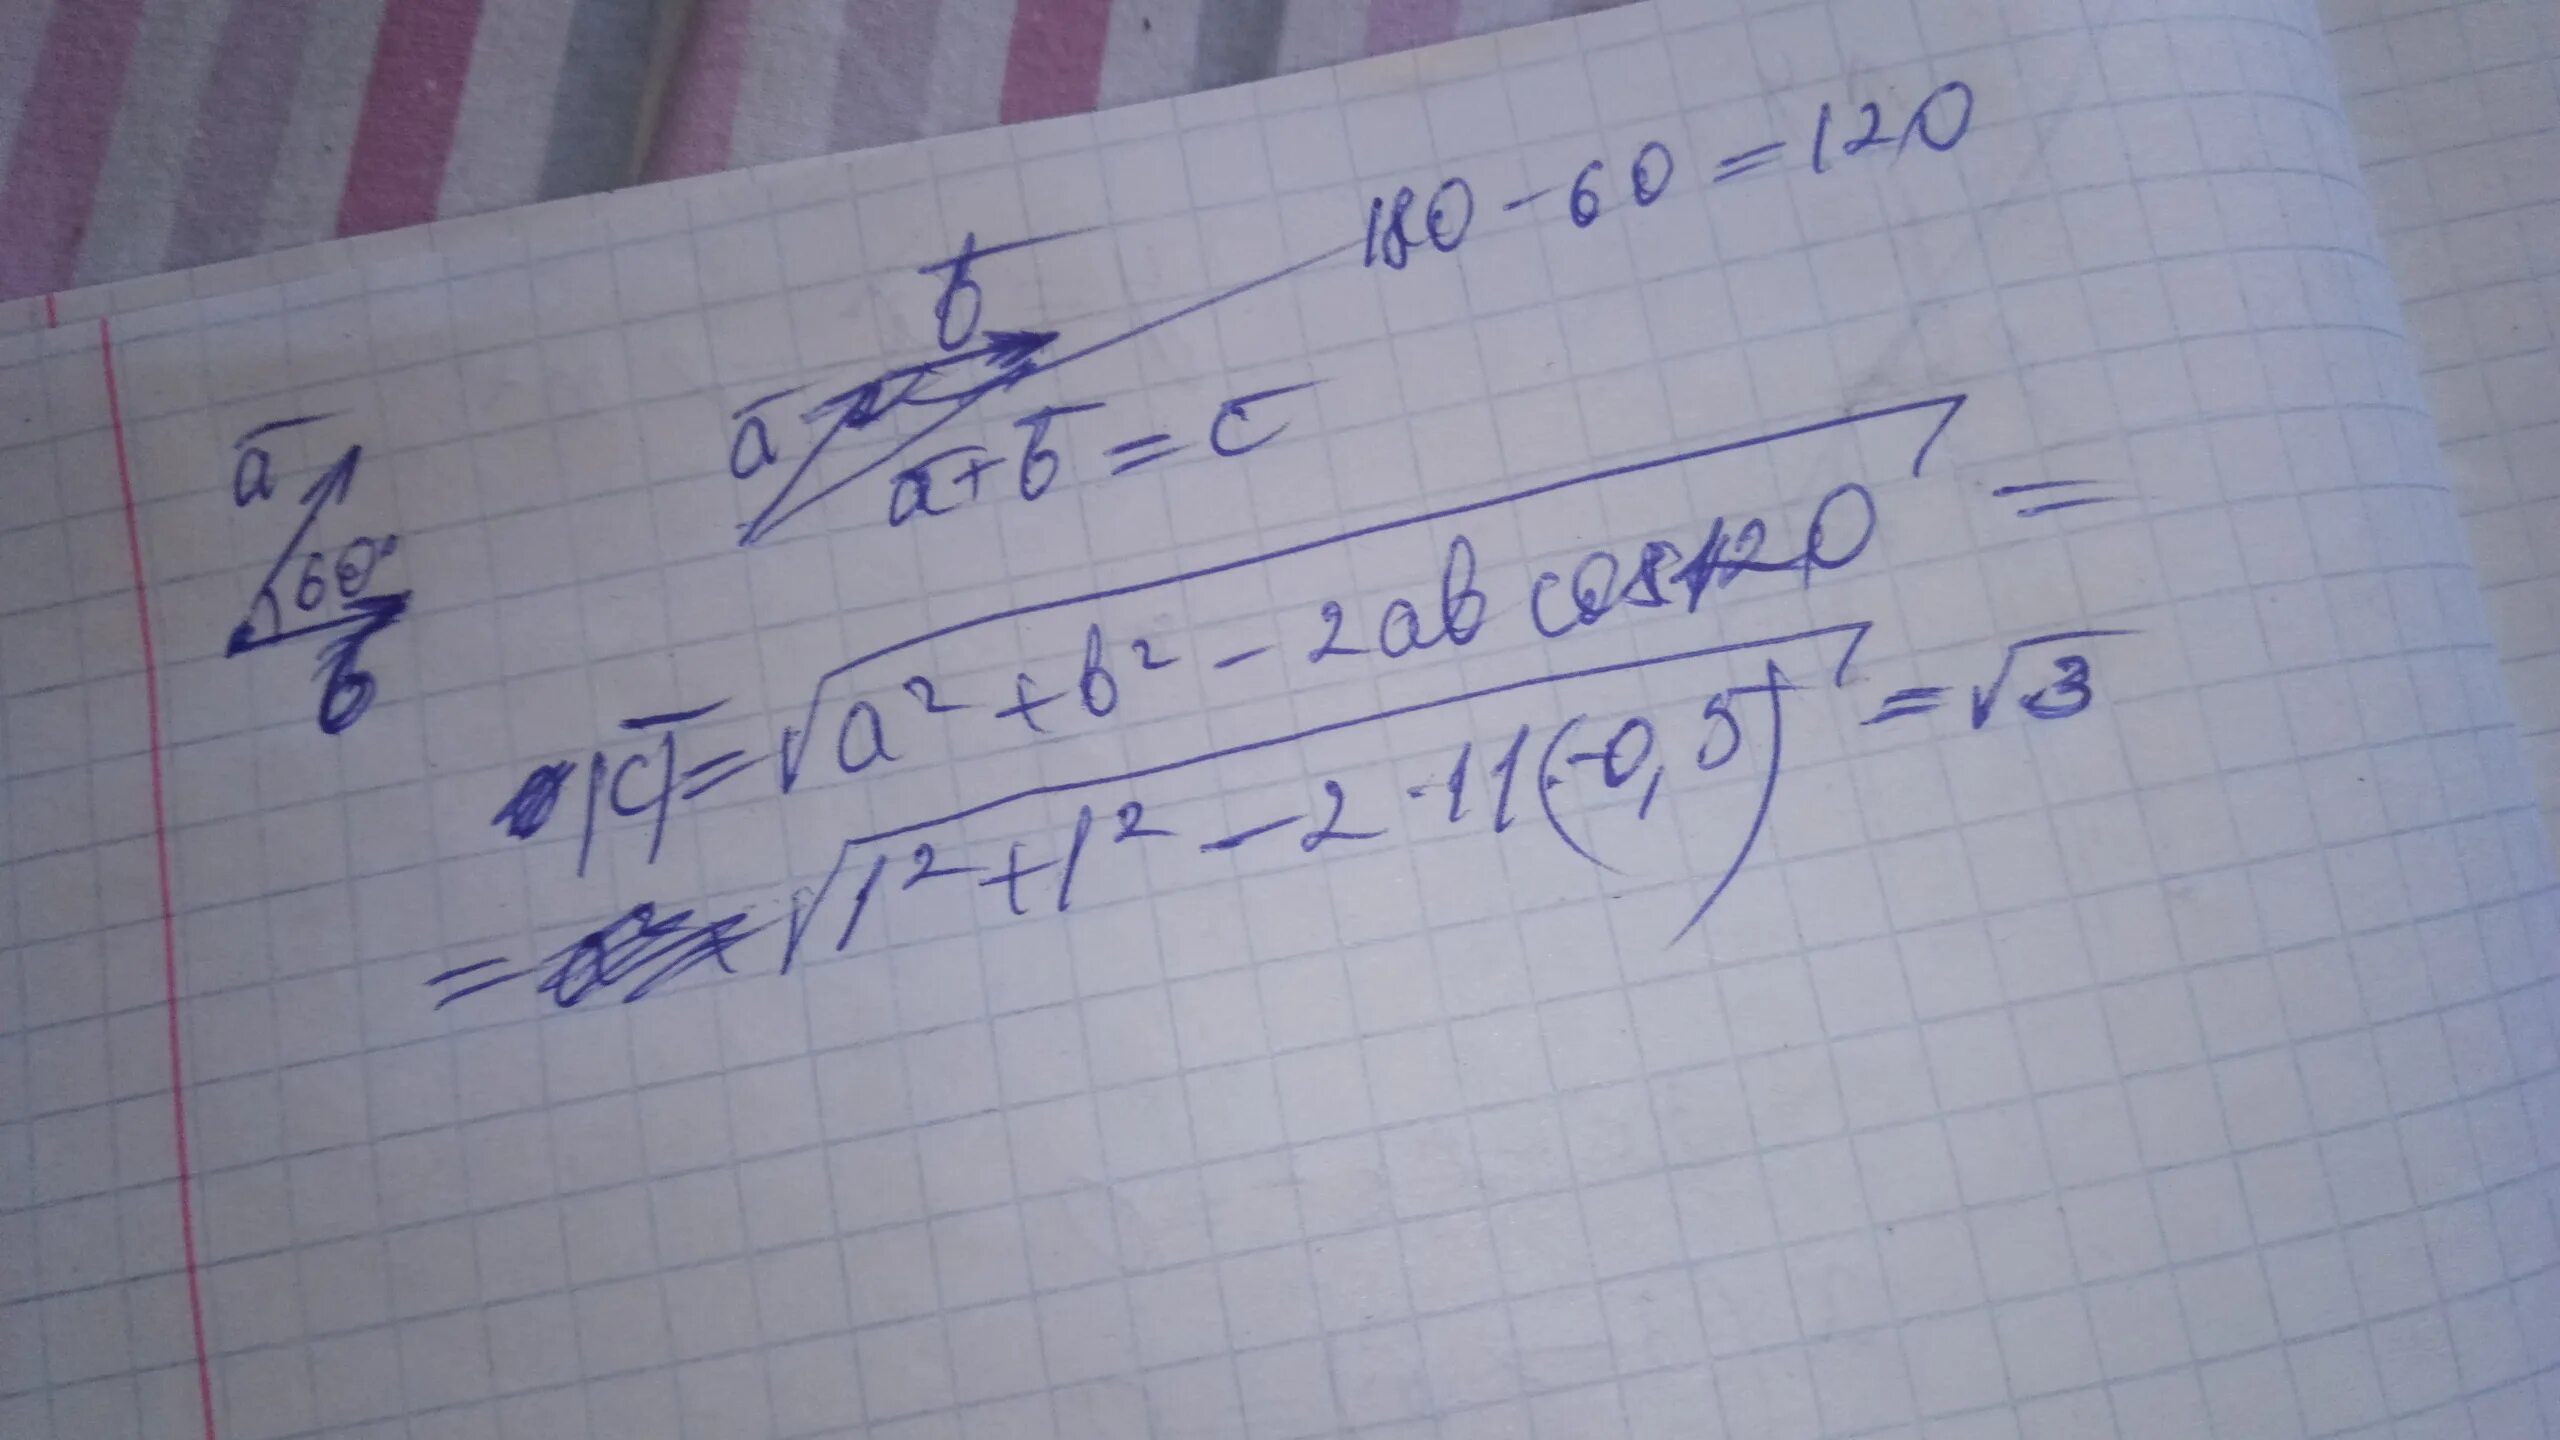 180 - 60 = 120
b̅
a̅
a̅ + b̅ = c̅
a̅
60°
b̅
|c̅| = √(a² + b² - 2ab cos120) =
= √(1² + 1² - 2 · 1 1 (-0,5)) = √3